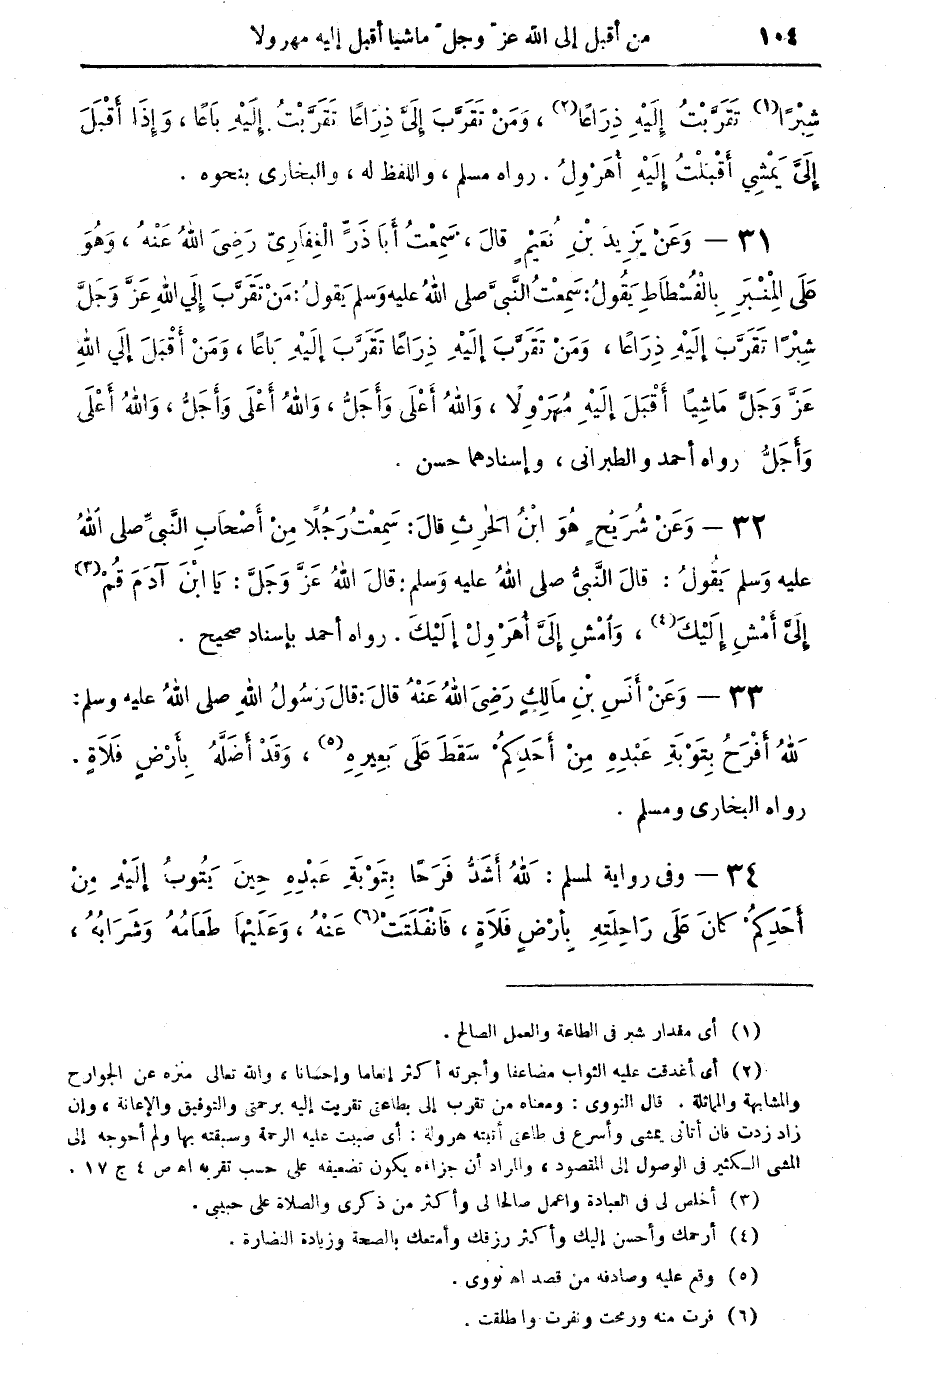 ١٠٤ من أقبل إلى الله عزّ وجلّ ماشيا أقبل إليه مهرولا
شِبْرًا(١) تَقَرَّبْتُ إِلَيْهِ ذِرَاعًا(٢) ، وَمَنْ تَقَرَّبَ إِلَىَّ ذِرَاعًا تَقَرَّبْتُ إِلَيْهِ بَاعًا ، وَإِذَا أَقْبَلَ
إِلَىَّ يَمْشِي أَقْبَلْتُ إِلَيْهِ أُهَرْوِلُ . رواه مسلم ، واللفظ له ، والبخارى بنحوه .
٣١ – وَعَنْ يَزِيدَ بْنِ نُعَيْمٍ قالَ ، سَمِعْتُ أَبَا ذَرٍّ الْغِفَارِىِّ رَضِىَ اللهُ عَنْهُ ، وَهُوَ
عَلَى الْمِنْبَرِ بِالْفُسْطَاطِ يَقُولُ : سَمِعْتُ النَّبِىَّ صلى اللهُ عليه وَسلم يَقولُ : مَنْ تَقَرَّبَ إِلَي اللهِ عَزَّ وَجَلَّ
شِبْرًا تَقَرَّبَ إِلَيْهِ ذِرَاعًا ، وَمَنْ تَقَرَّبَ إِلَيْهِ ذِرَاعًا تَقَرَّبَ إِلَيْهِ بَاعًا ، وَمَنْ أَقْبَلَ إِلَي اللهِ
عَزَّ وَجَلَّ مَاشِيًا أَقْبَلَ إِلَيْهِ مُهَرْوِلًا ، وَاللهُ أَعْلَى وَأَجَلُّ ، وَاللهُ أَعْلَى وَأَجَلُّ ، وَاللهُ أَعْلَى
وَأَجَلُّ رواه أحمد والطبرانى ، وإسنادهما حسن .
٣٢ – وَعَنْ شُرَيْحٍ هُوَ ابْنُ الحٰرِثِ قالَ : سَمِعْتُ رَجُلًا مِنْ أَصْحَابِ النَّبِىِّ صلى اللهُ
عليه وَسلم يَقُولُ : قالَ النَّبِىُّ صلى اللهُ عليه وَسلم : قالَ اللهُ عَزَّ وَجَلَّ : يَا ابْنَ آدَمَ قُمْ(٣)
إِلَىَّ أَمْشِ إِلَيْكَ(٤) ، وَامْشِ إِلَىَّ أُهَرْوِلْ إِلَيْكَ . رواه أحمد بإسناد صحيح .
٣٣ – وَعَنْ أَنَسِ بْنِ مَالِكٍ رَضِىَ اللهُ عَنْهُ قالَ : قالَ رَسُولُ اللهِ صلى اللهُ عليه وسلم :
لَلهُ أَفْرَحُ بِتَوْبَةِ عَبْدِهِ مِنْ أَحَدِكُمْ سَقَطَ عَلَى بَعِيرِهِ(٥) ، وَقَدْ أَضَلَّهُ بِأَرْضِ فَلَاةٍ .
رواه البخارى ومسلم .
٣٤ – وفى رواية لمسلم : لَلهُ أَشَدُّ فَرَحًا بِتَوْبَةِ عَبْدِهِ حِينَ يَتُوبُ إِلَيْهِ مِنْ
أَحَدِكُمْ كَانَ عَلَى رَاحِلَتِهِ بِأَرْضِ فَلَاةٍ ، فَانْفَلَتَتْ(٦) عَنْهُ ، وَعَلَيْهَا طَعَامُهُ وَشَرَابُهُ ،
(١) أى مقدار شبر فى الطاعة والعمل الصالح .
(٢) أى أغدقت عليه الثواب مضاعفا وأجرته أكثر إنعاما وإحسانا ، والله تعالى منزه عن الجوارح
والمشابهة والمماثلة . قال النووى : ومعناه من تقرب إلى بطاعتى تقربت إليه برحمتى والتوفيق والإعانة ، وإن
زاد زدت فان أتانى يمشى وأسرع فى طاعتى أتيته هرولة : أى صببت عليه الرحمة وسبقته بها ولم أحوجه إلى
المشى الكثير فى الوصول إلى المقصود ، والمراد أن جزاءه يكون تضعيفه على حسب تقربه اه ص ٤ ج ١٧ .
(٣) أخلص لى فى العبادة واعمل صالحا لى وأكثر من ذكرى والصلاة على حبيبى .
(٤) أرحمك وأحسن إليك وأكثر رزقك وأمتعك بالصحة وزيادة النضارة .
(٥) وقع عليه وصادفه من قصد اه نووى .
(٦) فرت منه ورمحت ونفرت وانطلقت .